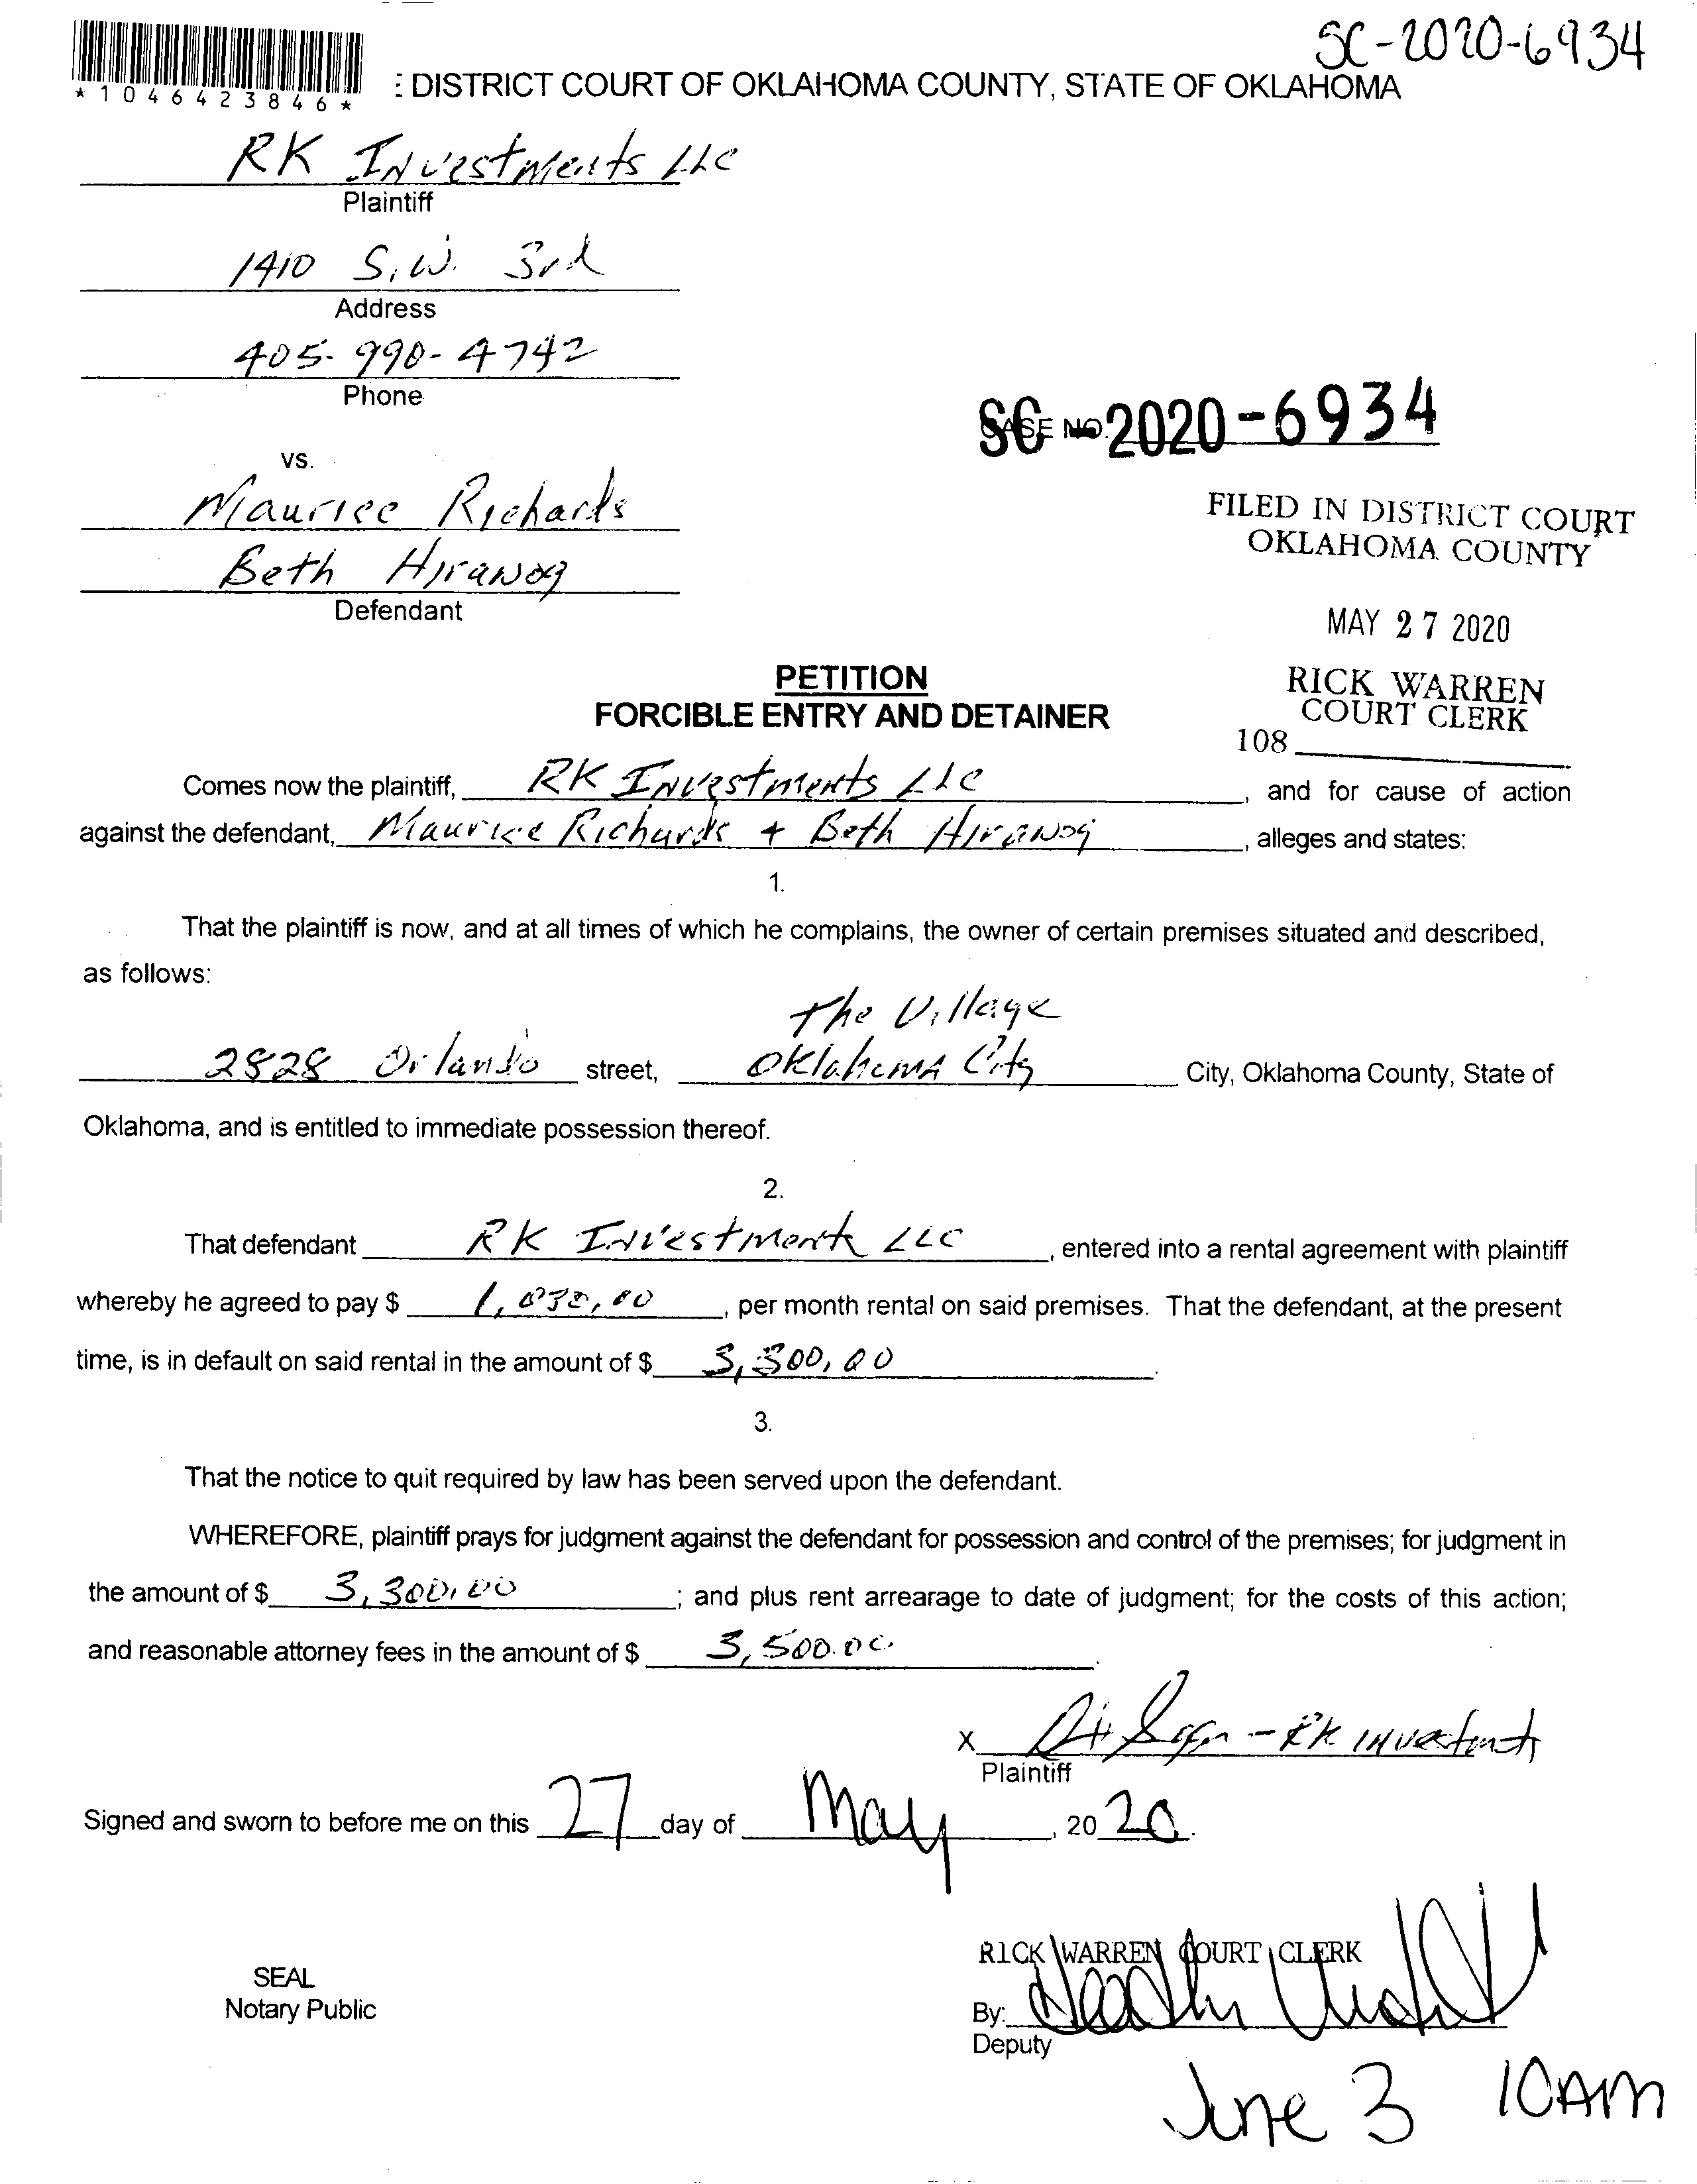 SC-2020-6934
*1046423846*
: DISTRICT COURT OF OKLAHOMA COUNTY, STATE OF OKLAHOMA
RK Investments LLC
Plaintiff
1410 S.W. 3rd
Address
405-990-4742
Phone
SC CASE NO. 2020-6934
vs.
Maurice Richards
FILED IN DISTRICT COURT
OKLAHOMA COUNTY
Beth
Defendant
MAY 27 2020
PETITION
RICK WARREN
COURT CLERK
FORCIBLE ENTRY AND DETAINER
108
Comes now the plaintiff, RK Investments LLC, and for cause of action
against the defendant, Maurice Richards + Beth, alleges and states:
1.
That the plaintiff is now, and at all times of which he complains, the owner of certain premises situated and described,
as follows:
The Village
2828 Orlando street, Oklahoma City City, Oklahoma County, State of
Oklahoma, and is entitled to immediate possession thereof.
2.
That defendant RK Investments LLC, entered into a rental agreement with plaintiff
whereby he agreed to pay $, per month rental on said premises. That the defendant, at the present
time, is in default on said rental in the amount of $ 3,300.00.
3.
That the notice to quit required by law has been served upon the defendant.
WHEREFORE, plaintiff prays for judgment against the defendant for possession and control of the premises; for judgment in
the amount of $ 3,300.00; and plus rent arrearage to date of judgment; for the costs of this action;
and reasonable attorney fees in the amount of $ 3,500.00.
X - RK Investments
Plaintiff
Signed and sworn to before me on this 27 day of May, 20 20.
RICK WARREN COURT CLERK
SEAL
Notary Public
By:
Deputy
June 3 10AM